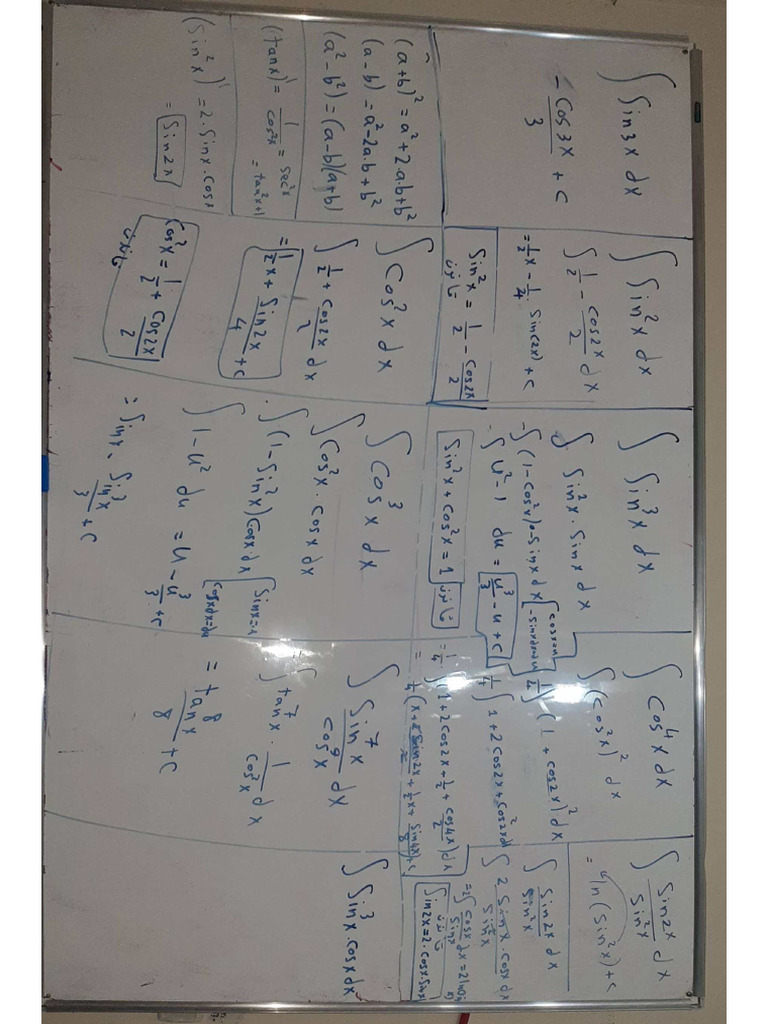 ∫ Sin3x dx
-Cos3x/3 + c
(a+b)² = a² + 2.a.b + b²
(a-b) = a² - 2a.b + b²
(a² - b²) = (a-b)(a+b)
(tanx)' = 1/cos²x = sec²x
= tan²x+1
(Sin²x)' = 2.Sinx.cosx
= Sin2x
∫ Sin²x dx
∫ 1/2 - cos2x/2 dx
= 1/2 x - 1/4 . Sin(2x) + c
Sin²x = 1/2 - Cos2x/2
قانون
∫ Cos²x dx
∫ 1/2 + cos2x/2 dx
= 1/2 x + Sin2x/4 + c
Cos²x = 1/2 + Cos2x/2
قانون
∫ Sin³x dx
∫ Sin²x . Sinx dx
-∫ (1-Cos²x).-Sinx dx
cosx=u
-sinxdx=du
-∫ u²-1 du = u³/3 - u + c
Sin²x + Cos²x = 1
قانون
∫ Cos³x dx
∫ Cos²x . cosx dx
∫ (1-Sin²x) Cosx dx
Sinx=u
cosxdx=du
∫ 1-u² du = u - u³/3 + c
= Sinx - Sin³x/3 + c
∫ Cos⁴x dx
∫ (cos²x)² dx
1/4 ∫ (1 + cos2x)² dx
1/4 ∫ 1 + 2cos2x + cos²2x dx
= 1/4 ∫ (1 + 2cos2x + 1/2 + cos4x/2) dx
∫ Sin⁷x/cos⁹x dx
= ∫ tan⁷x . 1/cos²x dx
= tan⁸x/8 + c
∫ Sin2x/Sin²x dx
= ln(Sin²x) + c
∫ Sin2x/sin²x dx
∫ 2 Sinx . cosx dx/Sin²x
= 2∫ cosx/Sinx dx
قانون
Sin2x = 2.cosx.Sinx
∫ Sin³x . cosx dx